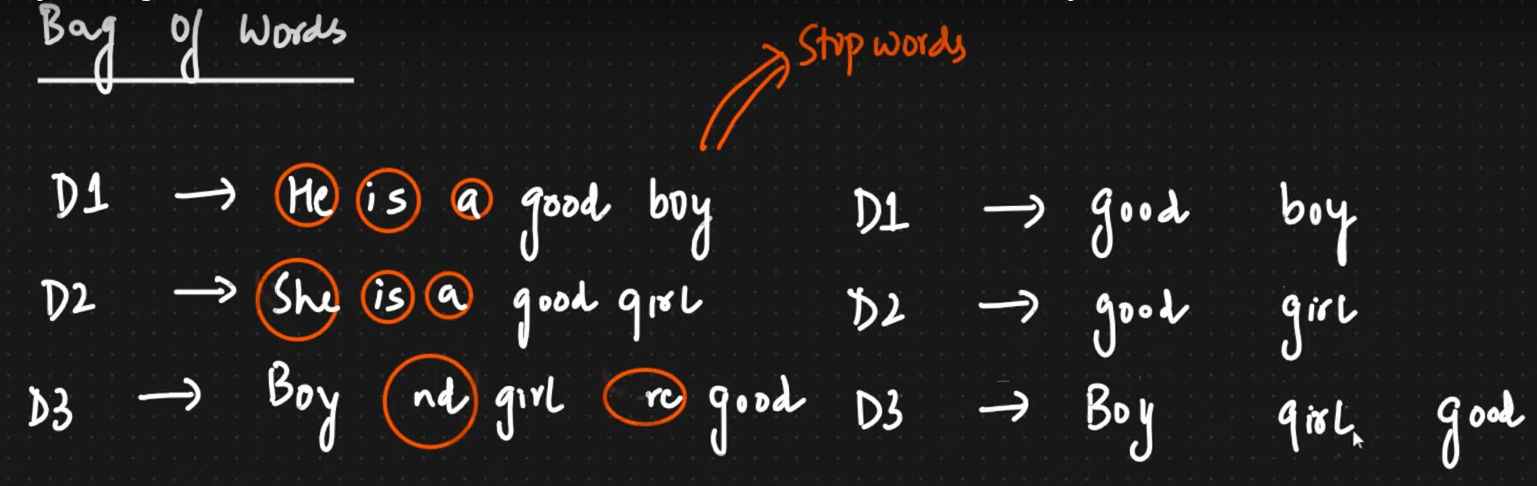 Bag of Words
Stop words
D1 → He is a good boy
D2 → She is a good girl
D3 → Boy nd girl re good
D1 → good boy
D2 → good girl
D3 → Boy girl good